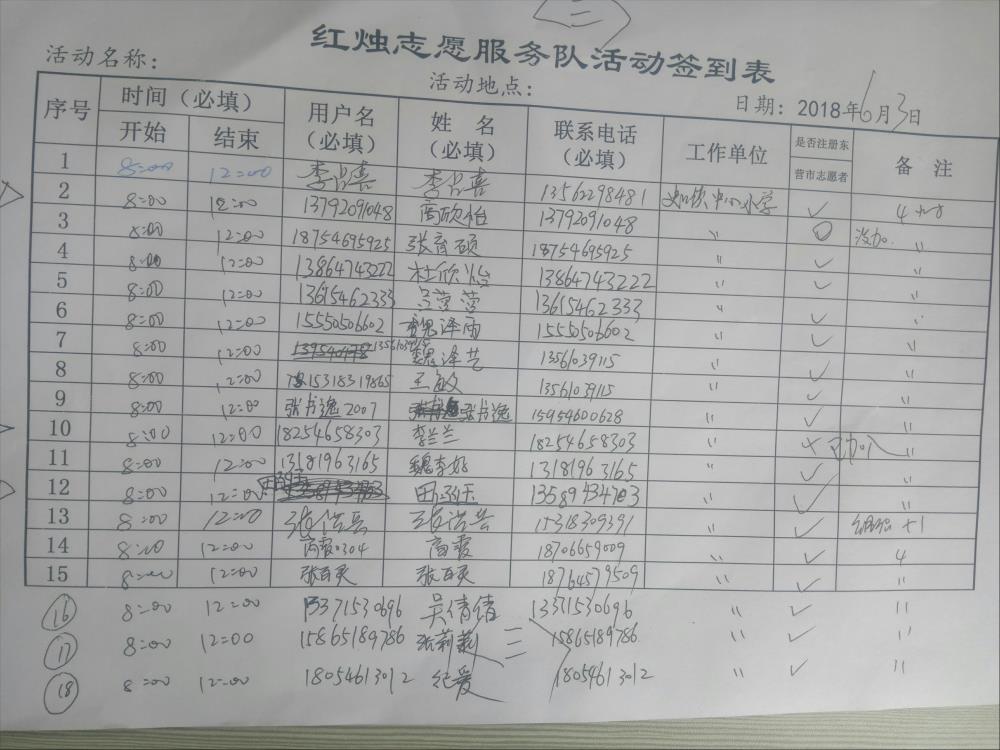 三
红烛志愿服务队活动签到表
活动名称： 活动地点： 日期：2018年6月3日
序号 时间（必填） 用户名（必填） 姓 名（必填） 联系电话（必填） 工作单位 是否注册东营市志愿者 备 注
开始 结束
1 8:00 12:00 13562298481 中心小学 ✓
2 8:00 12:00 13792091048 高欣怡 13792091048 〃
3 8:00 12:00 18754695925 张育硕 18754695925 〃 ✓ 〃
4 8:00 12:00 13864743222 杜欣怡 13864743222 〃 ✓ 〃
5 8:00 12:00 13615462333 吕莹莹 13615462333 〃 ✓ 〃
6 8:00 12:00 15550506602 魏泽雨 15550506602 〃 ✓ 〃
7 8:00 12:00 魏泽艺 13561039115 〃 ✓ 〃
8 8:00 12:00 15318319865 王敏 13561039115 〃 ✓ 〃
9 8:00 12:00 张书逸2007 张书逸 15954600628 〃 ✓ 〃
10 8:00 12:00 18254658303 李兰兰 18254658303 〃 已加入 〃
11 8:00 12:00 13181963165 魏李好 13181963165 〃 ✓ 〃
12 8:00 12:00 13589434703 〃 ✓ 〃
13 8:00 12:00 15318309391 〃 ✓ +1
14 8:00 12:00 高霞 18706659009 〃 ✓ 4
15 8:00 12:00 张百灵 张百灵 18764579509 〃 ✓ 〃
16 8:00 12:00 13371530696 吴倩倩 13371530696 〃 ✓ 〃
17 8:00 12:00 15865189786 张莉莉 15865189786 〃 ✓ 〃
18 8:00 12:00 18054613012 纪爱 18054613012 〃 ✓ 〃